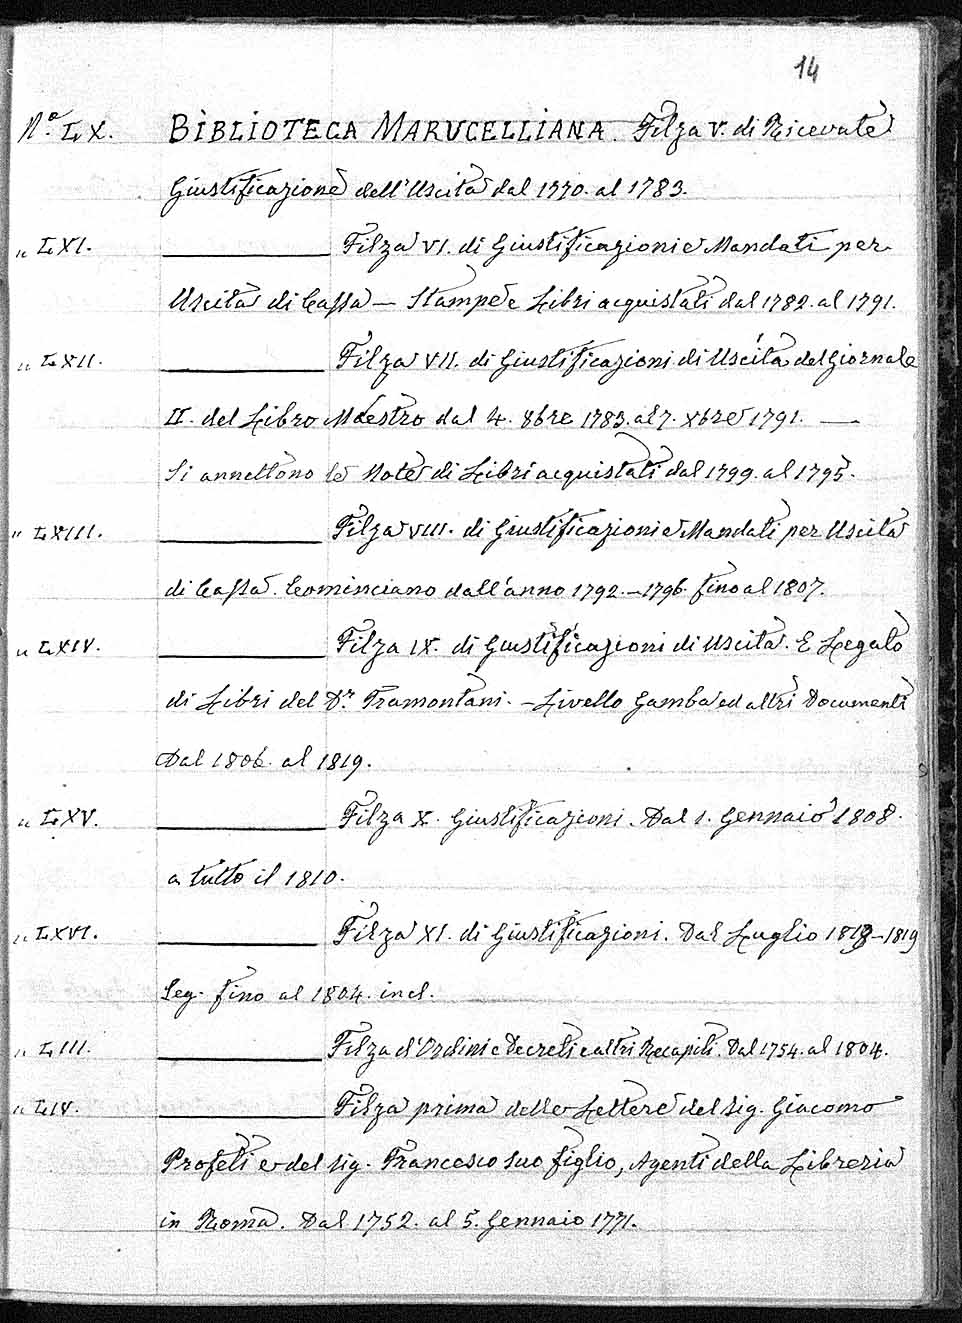 14
N.º LX. BIBLIOTECA MARUCELLIANA. Filza V. di Ricevute
Giustificazione dell'Uscita dal 1770. al 1783.
" LXI. Filza VI. di Giustificazioni e Mandati per
Uscita di Cassa — Stampe e Libri acquistati dal 1782. al 1791.
" LXII. Filza VII. di Giustificazioni di Uscita del Giornale
II. del Libro Maestro dal 4. 8bre 1783. al 7. Xbre 1791. —
Si annettono le Note di Libri acquistati dal 1799. al 1795.
" LXIII. Filza VIII. di Giustificazioni e Mandati per Uscita
di Cassa. Cominciano dall'anno 1792. — 1796. fino al 1807.
" LXIV. Filza IX. di Giustificazioni di Uscita. E Legato
di Libri del Dr. Tramontani. — Livello Gamba ed altri Documenti
Dal 1806. al 1819.
" LXV. Filza X. Giustificazioni. Dal 1. Gennaio 1808.
a tutto il 1810.
" LXVI. Filza XI. di Giustificazioni. Dal Luglio — 1819
Seg. fino al 1804. incl.
" LIII. Filza d'Ordini e Decreti e altri Recapiti. Dal 1754. al 1804.
" LIV. Filza prima delle Lettere del Sig. Giacomo
Profeti e del Sig. Francesco suo figlio, Agenti della Libreria
in Roma. Dal 1752. al 5. Gennaio 1771.